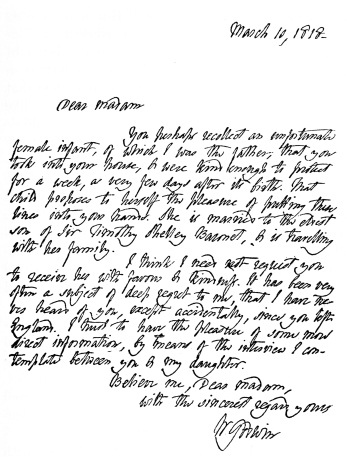 March 10, 1818.
Dear Madam
You perhaps recollect an unfortunate
female infant, of which I was the father, that you
took into your house, & were kind enough to protect
for a week, a very few days after its birth. That
child proposes to herself the pleasure of putting these
lines into your hands. She is married to the eldest
son of Sir Timothy Shelley Baronet, & is travelling
with her family.
I think I need not request you
to receive her with favour & kindness. It has been very
often a subject of deep regret to me, that I have ne-
ver heard of you, except accidentally, since you left
England. I trust to have the pleasure of some more
direct information, by means of the interview I con-
template between you & my daughter.
Believe me, Dear Madam,
with the sincerest regard yours
W Godwin